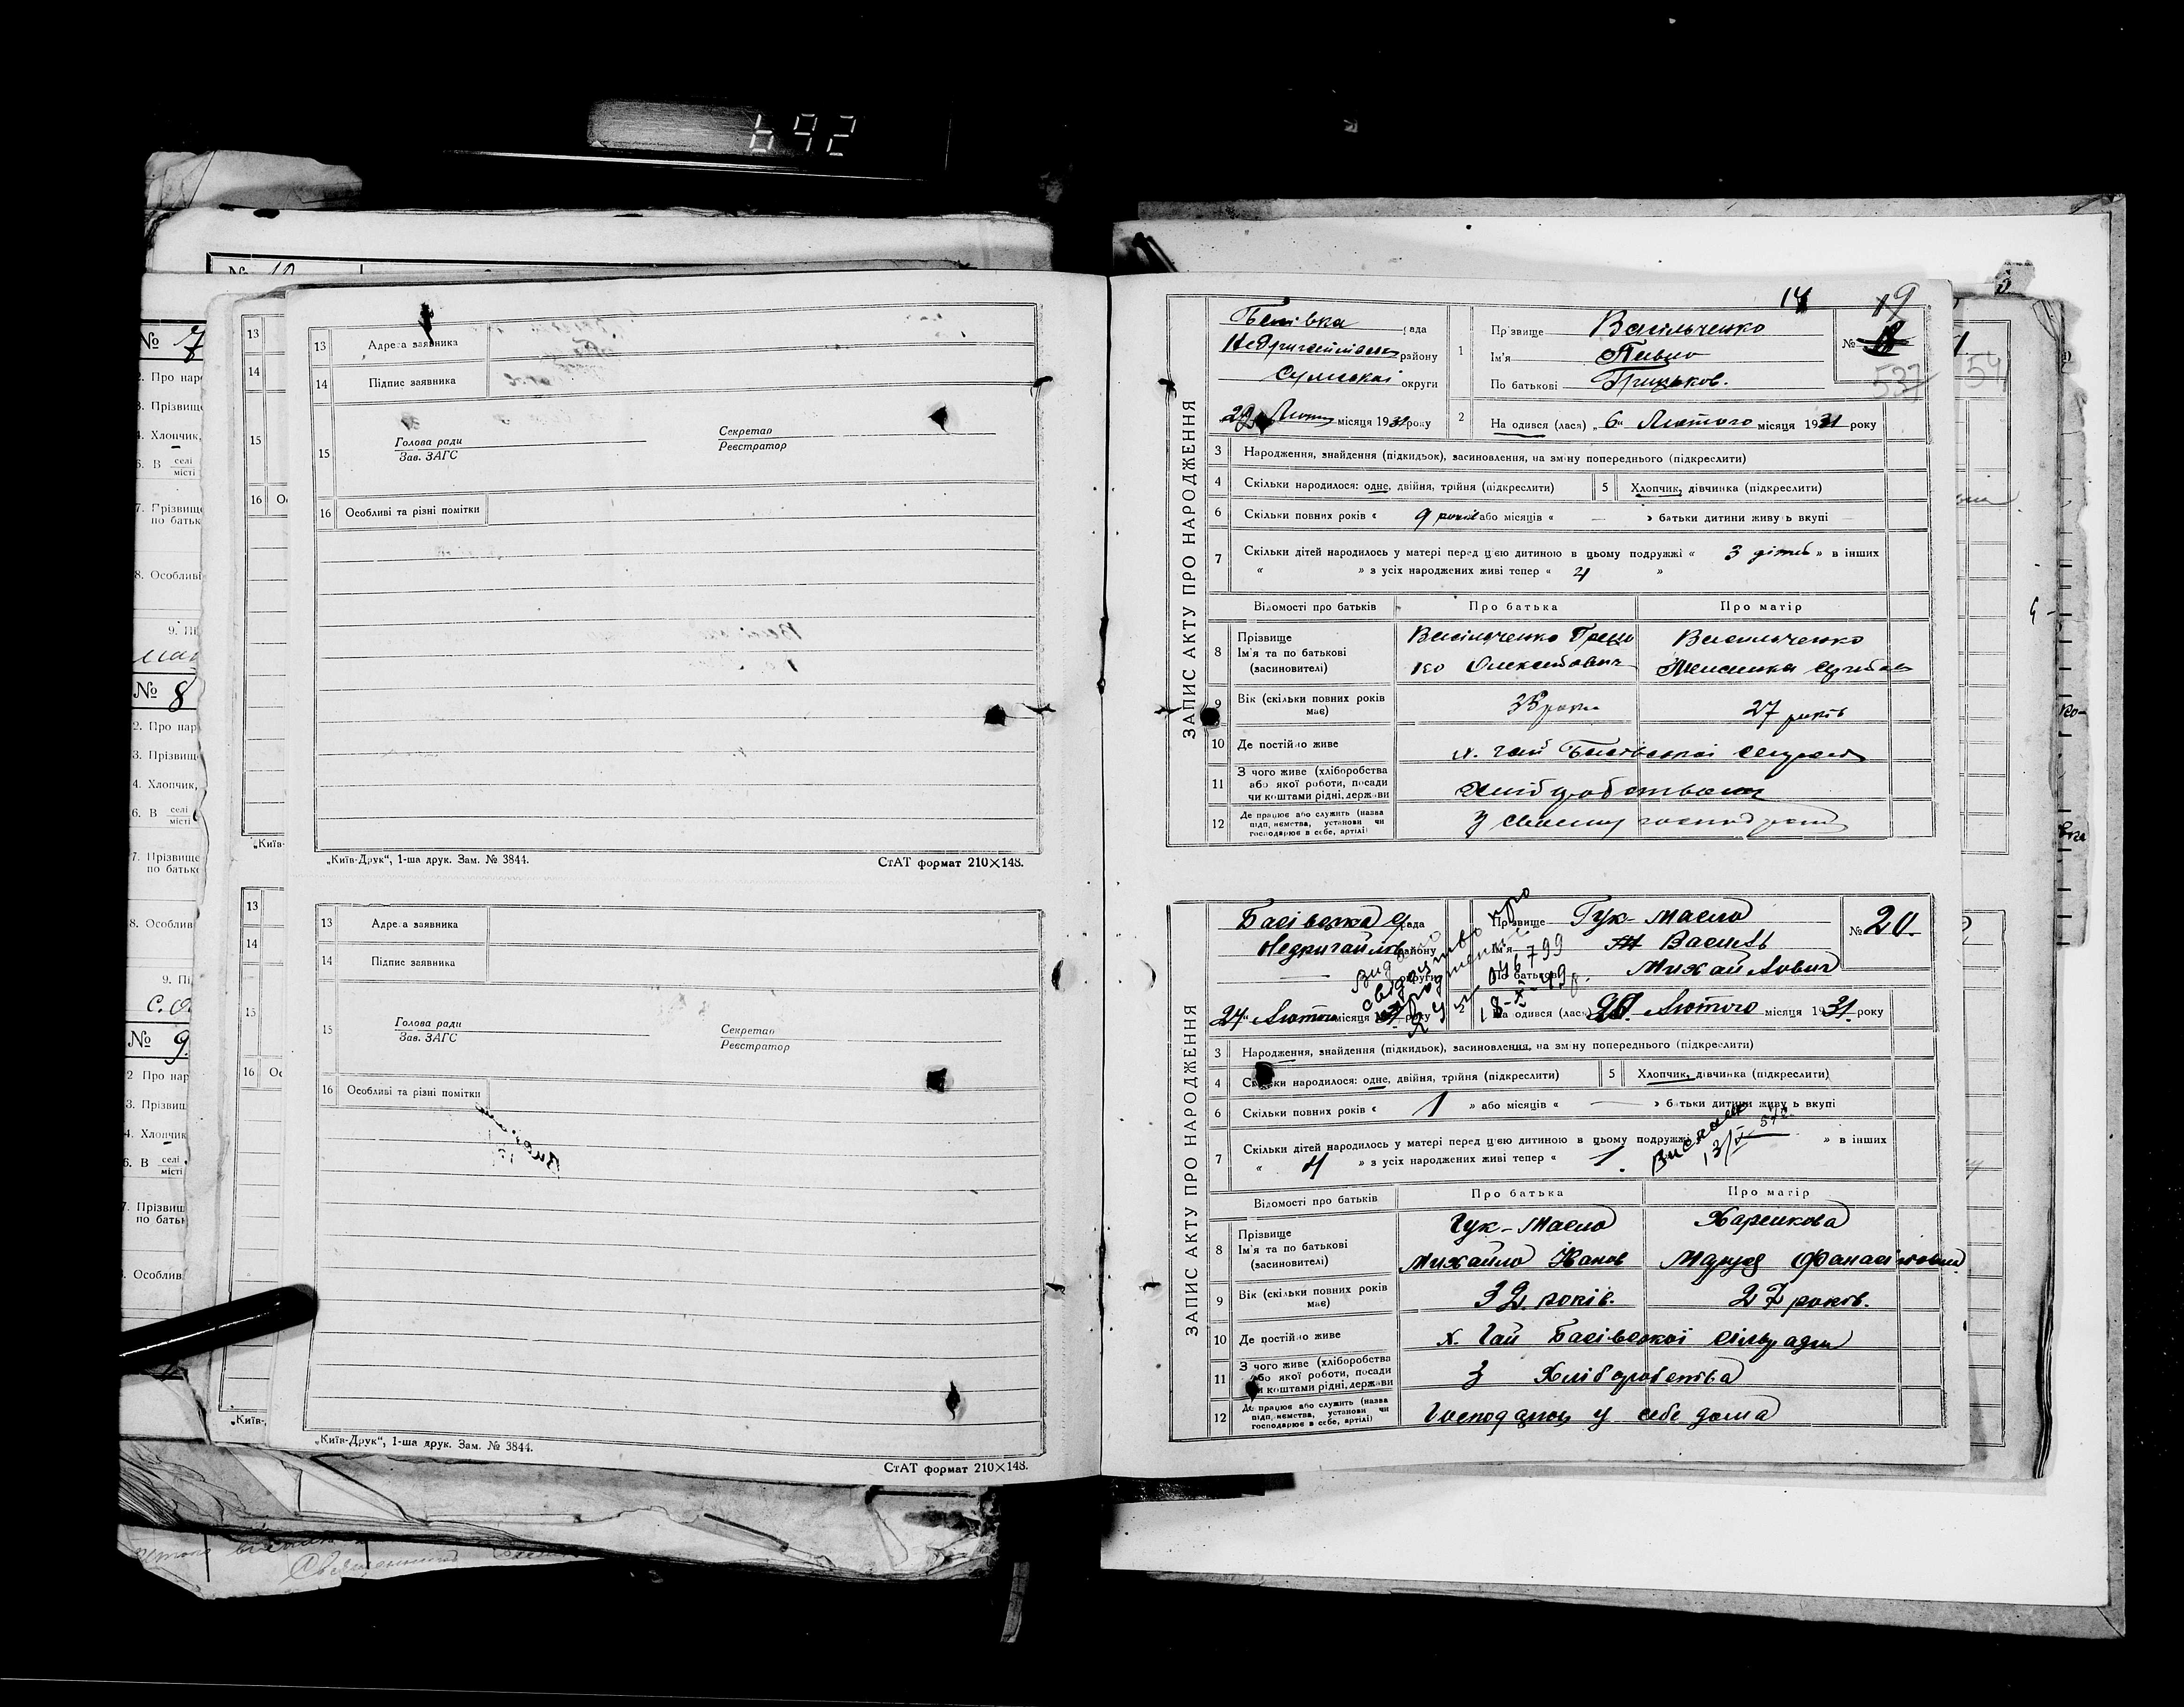 692
№ 7
2. Про нар
3. Прізвище
4. Хлопчик,
6. В селі
місті
7. Прізвище
по батьк
8. Особливі
9. Пі
№ 8
2. Про нар
3. Прізвищ
4. Хлопчик,
6. В селі
місті
7. Прізвище
по батьк
8. Особлив
9. Пі
№ 9
2 Про нар
3. Прізвищ
4. Хлопчик
6. В селі
місті
7. Прізвищ
по батьк
Особлив
13
14
15
16 Ос
„Київ-
13
14
15
16 Ос
„Київ-
13 Адреса заявника
14 Підпис заявника
15 Голова ради
Зав. ЗАГС
Секретар
Реєстратор
16 Особливі та різні помітки
„Київ-Друк“, 1-ша друк. Зам. № 3844.
СтАТ формат 210×148.
13 Адреса заявника
14 Підпис заявника
15 Голова ради
Зав. ЗАГС
Секретар
Реєстратор
16 Особливі та різні помітки
„Київ-Друк“, 1-ша друк. Зам. № 3844.
СтАТ формат 210×148.
14
19
537
54
ЗАПИС АКТУ ПРО НАРОДЖЕННЯ
Басівка рада
району
Сумської округи
Лютого місяця 1931 року
1 Прізвище Васильченко
Ім'я Павло
По батькові Грицьков.
№
2 На одився (лася) „6“ Лютого місяця 1931 року
3 Народження, знайдення (підкидьок), засиновлення, на зміну попереднього (підкреслити)
4 Скільки народилося: одне, двійня, трійня (підкреслити)
5 Хлопчик, дівчинка (підкреслити)
6 Скільки повних років « 9 років або місяців « — » батьки дитини живуть вкупі —
7 Скільки дітей народилось у матері перед цією дитиною в цьому подружжі « 3 дітей » в інших
« » з усіх народжених живі тепер « 4 »
Відомості про батьків
Про батька
Про матір
8 Прізвище
Ім'я та по батькові
(засновителі)
Васильченко
Васильченко
9 Вік (скільки повних років має)
27 років
10 Де постійно живе
х. Гай Басівської сільради
11 З чого живе (хліборобства
або якої роботи, посади
чи коштами рідні, держави
Хліборобством
12 Де працює або служить (назва
підприємства, установи чи
господарює в себе, артілі)
У своєму господарстві
ЗАПИС АКТУ ПРО НАРОДЖЕННЯ
Басівська рада
Недригайлів району
— округи
24“ Лютого місяця 1931 року
Видано
свідоцтво про
народження
046799
18-X-49р.
Прізвище Гук-Масло
Ім'я Василь
По батькові Михайлович
№ 20.
2 На одився (лася) 20. Лютого місяця 1931. року
3 Народження, знайдення (підкидьок), засиновлення, на зміну попереднього (підкреслити)
4 Скільки народилося: одне, двійня, трійня (підкреслити)
5 Хлопчик, дівчинка (підкреслити)
6 Скільки повних років « 1 » або місяців « — » батьки дитини живуть вкупі
7 Скільки дітей народилось у матері перед цією дитиною в цьому подружжі » в інших
« 4 » з усіх народжених живі тепер « 1.
Відомості про батьків
Про батька
Про матір
8 Прізвище
Ім'я та по батькові
(засновителі)
Гук-Масло
Михайло Іванов
Харсикова
Маруся
9 Вік (скільки повних років має)
32 років.
27 років.
10 Де постійно живе
х. Гай Басівської сільради
11 З чого живе (хліборобства
або якої роботи, посади
чи коштами рідні, держави
З Хліборобства
12 Де працює або служить (назва
підприємства, установи чи
господарює в себе, артілі)
Господарює у себе дома